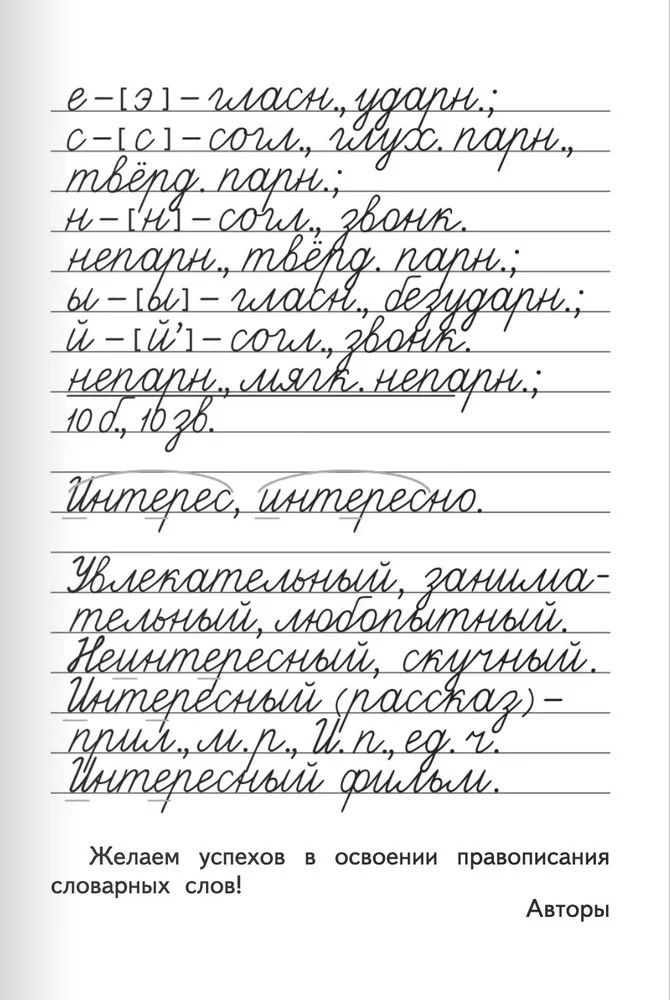 е – [э] – гласн., ударн.;
с – [с] – согл., глух. парн.,
твёрд. парн.;
н – [н] – согл., звонк.
непарн., твёрд. парн.;
ы – [ы] – гласн., безударн.;
й – [й’] – согл., звонк.
непарн., мягк. непарн.;
10 б., 10 зв.
Интерес, интересно.
Увлекательный, занима-
тельный, любопытный.
Неинтересный, скучный.
Интересный (рассказ) –
прил., м. р., И. п., ед. ч.
Интересный фильм.
Желаем успехов в освоении правописания
словарных слов!
Авторы